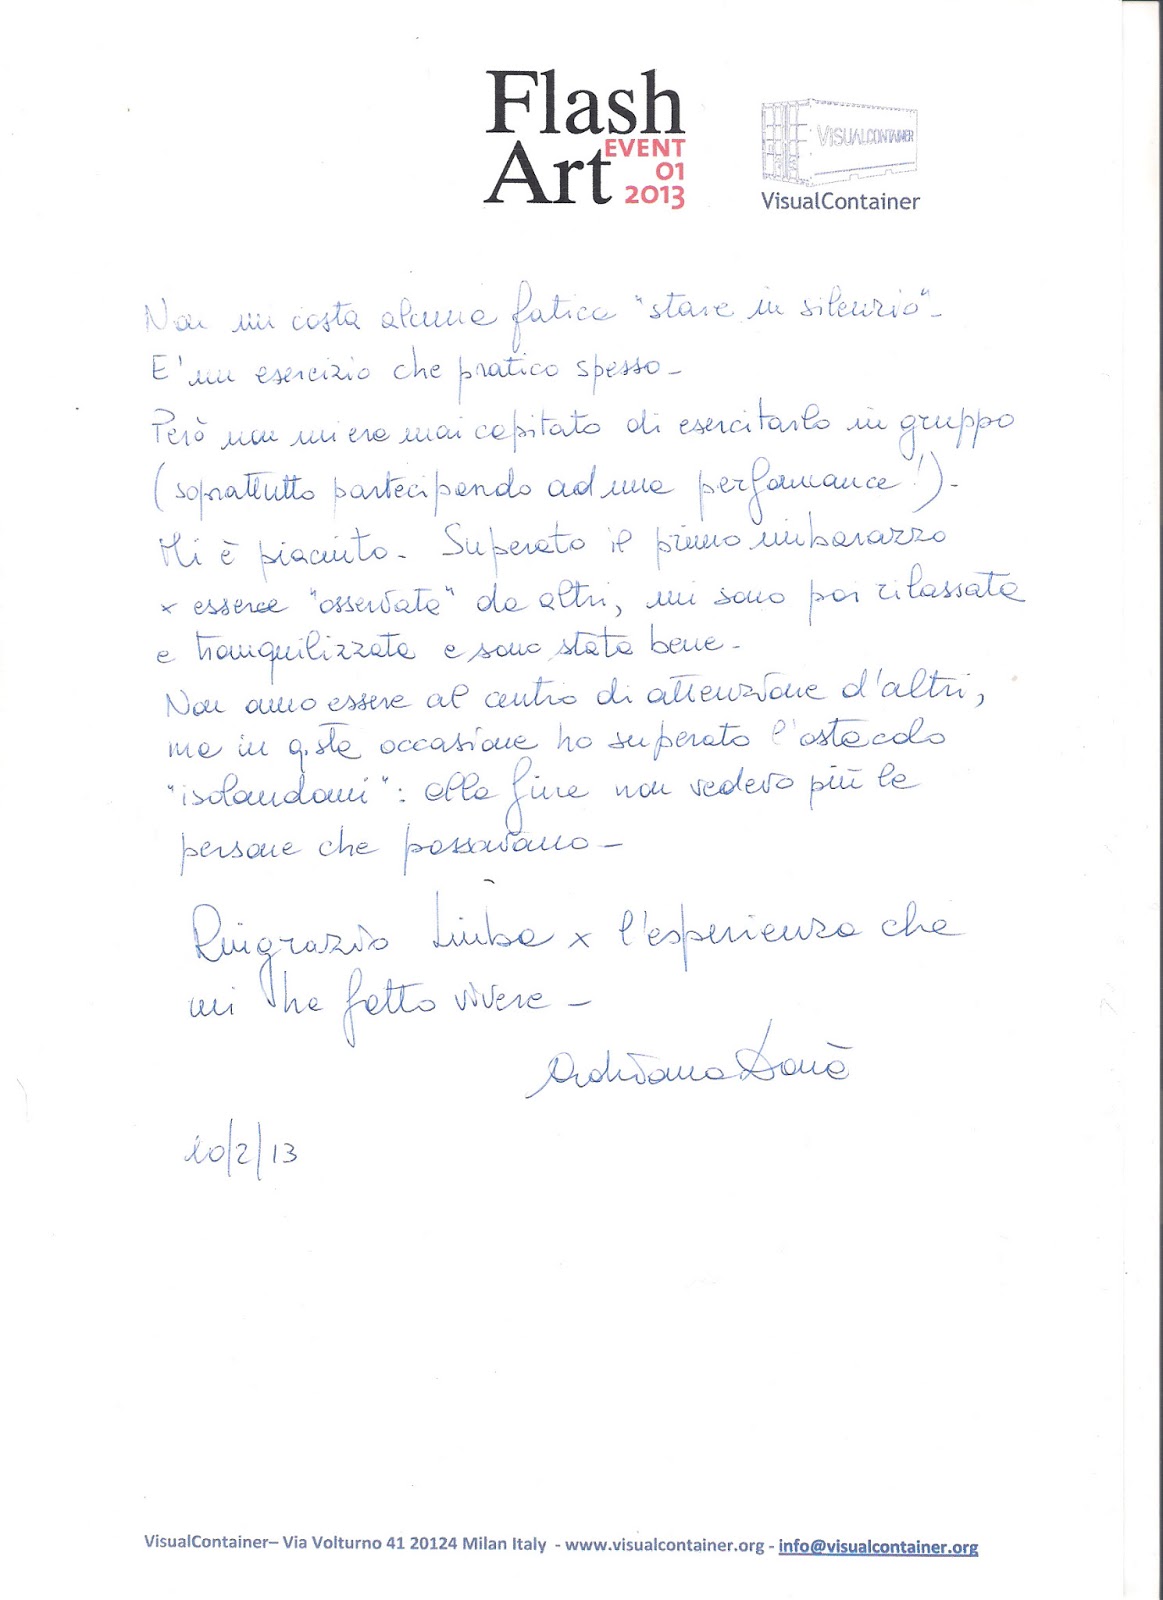 Flash
Art
EVENT
01
2013
VISUALCONTAINER
VisualContainer
Non mi costa alcuna fatica "stare in silenzio" -
E' un esercizio che pratico spesso -
Però non mi era mai capitato di esercitarlo in gruppo
(soprattutto partecipando ad una performance!) -
Mi è piaciuto - Superato il primo imbarazzo
x essere "osservata" da altri, mi sono poi rilassata
e tranquilizzata e sono stata bene -
Non amo essere al centro di attenzione d'altri,
ma in q.sta occasione ho superato l'ostacolo
"isolandomi": alla fine non vedevo più le
persone che passavano -
Ringrazio x l'esperienza che
mi ha fatto vivere -
Adriana
10/2/13
VisualContainer– Via Volturno 41 20124 Milan Italy - www.visualcontainer.org - info@visualcontainer.org